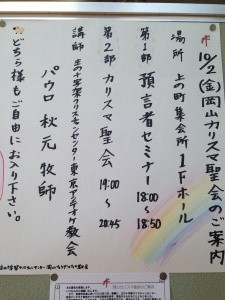 10/2(金)岡山カリスマ聖会のご案内
場所 上の町集会所1Fホール
第1部 預言者セミナー 18:00~18:50
第2部 カリスマ聖会 19:00~20:45
講師 生の十字架クリスチャンセンター東京アンテオケ教会
パウロ秋元牧師
どちら様もご自由にお入り下さい。